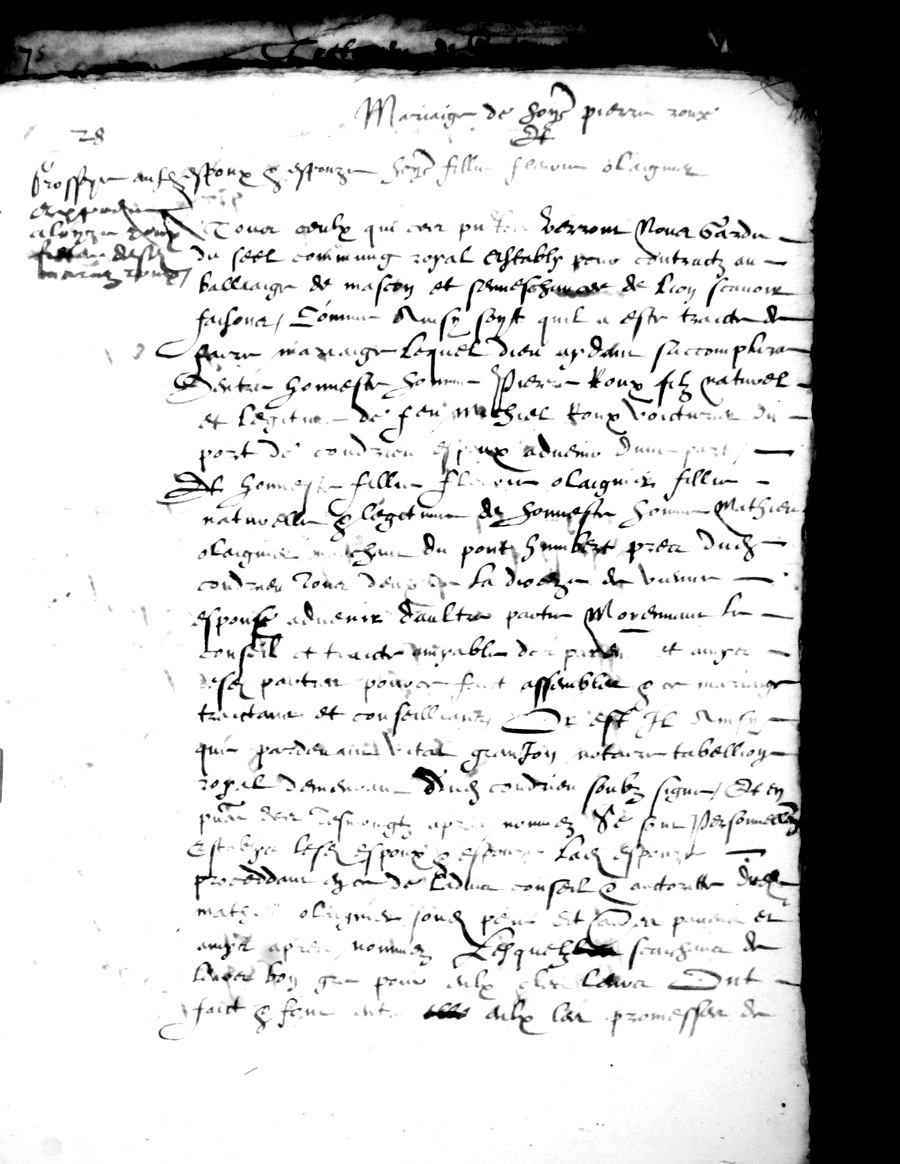 Mariaige de hon^e pierre roux
Et
28
hon^e fille Flevie olaignier
Grossoye ausd espoux & espouze
a loyze roux
A Tous ceulx qui ces p^ntes verront Nous Garde
du seel commung royal estably pour contractz au
balliaige de mascon et seneschaucee de Lion scavoir
faisons / Comme Ainsy soyt quil a este traicte de
faire mariaige lequel dieu aydant saccomplira
Dentre honneste homme Pierre Roux filz naturel
et legitime de feu Michiel Roux voicturier du
port de condrieu espoux advenir dune part /
Et honneste fille Flevie olaignier fille
naturelle & legitime de honneste homme Mathieu
olaignier marchant du pont humbert pres dud
condrieu tous deux de la dioceze de vienne
espouse advenir daultre partie Moyennant le
conseil et traicte amyable des parens et amys
desd parties pource faict assembler & ce mariaige
traictans et conseillians, Or est Il Ainsy
que pardevant vital granjon notaire tabellion
royal demeurant aud condrieu soubz signe / Et en
p^nce des tesmoingtz apres nommez Se sont Personnellem^t
Establys lesd espoux & espouze Lad espouze
proceddant en ce de Ladvis conseil & auctorite dud
mathieu olaignier sond pere Et Daultres parens et
amys apres nommez Lesquelz scaichans de
leurs bon gre pour eulx & les leurs Ont
faict & font entre eulx les promesses de